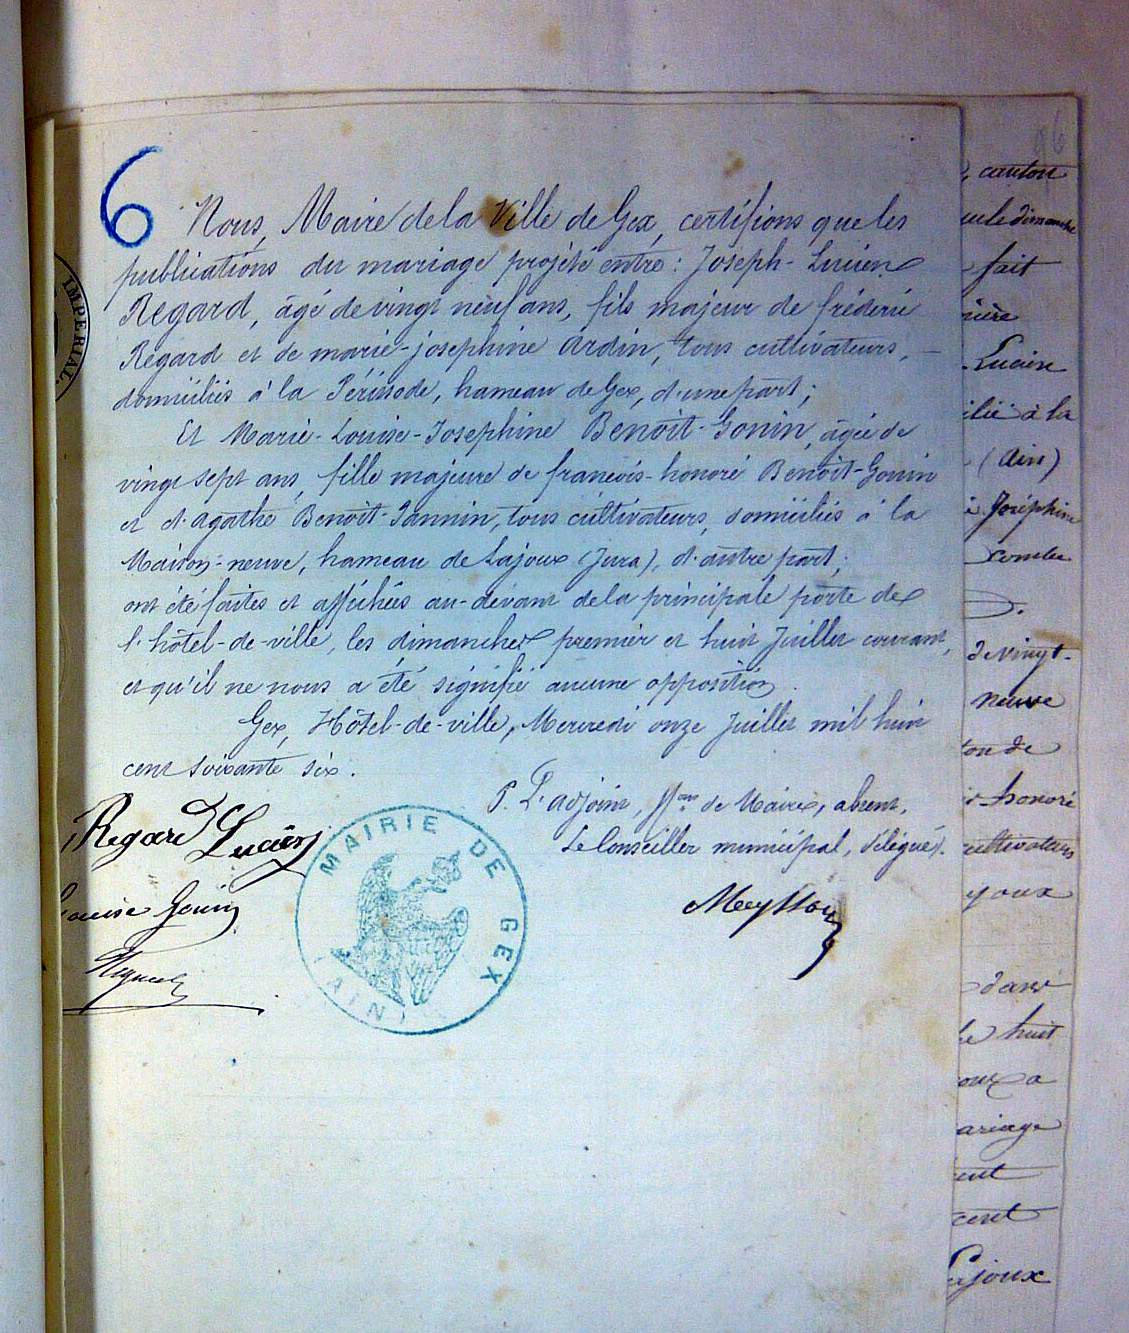 6
Nous, Maire de la Ville de Gex, certifions que les
publications du mariage projeté entre : Joseph-Lucien
Regard, âgé de vingt neuf ans, fils majeur de fréderic
Regard et de marie-josephine Ardin, tous cultivateurs,
domiciliés à la hameau de Gex, d'une part ;
Et Marie-Louise-Josephine Benoit-Gonin, âgée de
vingt sept ans, fille majeure de francois-honoré Benoit-Gonin
et d'agathe Benoit-Jannin, tous cultivateurs, domiciliés à la
Maison-neuve, hameau de Lajoux (Jura), d'autre part ;
ont été faites et affichées au-devant de la principale porte de
l'hôtel-de-ville, les dimanches premier et huit Juillet courant,
et qu'il ne nous a été signifié aucune opposition.
Gex, Hôtel-de-ville, Mercredi onze Juillet mil huit
cent soixante six.
P. L'adjoint, ffons de Maire, absent,
Le Conseiller municipal, délégué.
Regard Lucien
Louise Gonin
MAIRIE DE GEX
(AIN)
IMPERIAL
96
, canton
que le dimanche
fait
Lucien
cilié à la
(Ain)
Joséphine
D.
de vingt-
neuve
ton de
honoré
cultivateurs
joux
dans
le huit
oux a
ariage
ent
cent
Lajoux